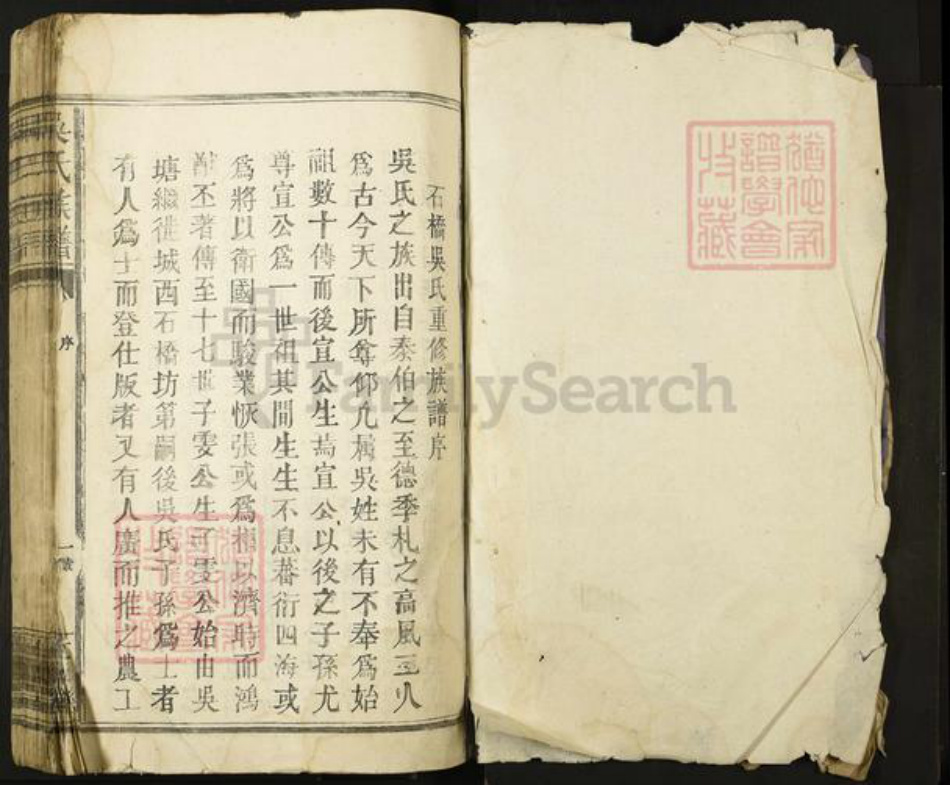 石橋吳氏重修族譜序
吳氏之族出自泰伯之至德季札之高風二人
爲古今天下所尊仰凡屬吳姓未有不奉爲始
祖數十傳而後宣公生焉宣公以後之子孫尤
尊宣公爲一世祖其間生生不息蕃衍四海或
爲將以衛國而駿業恢張或爲相以濟時而鴻
猷丕著傳至十七世子雯公生子雯公始由吳
塘繼徙城西石橋坊第嗣後吳氏子孫爲士者
有人爲士而登仕版者又有人廣而推之農工
吳氏族譜
序
FamilySearch
譜學會
收藏